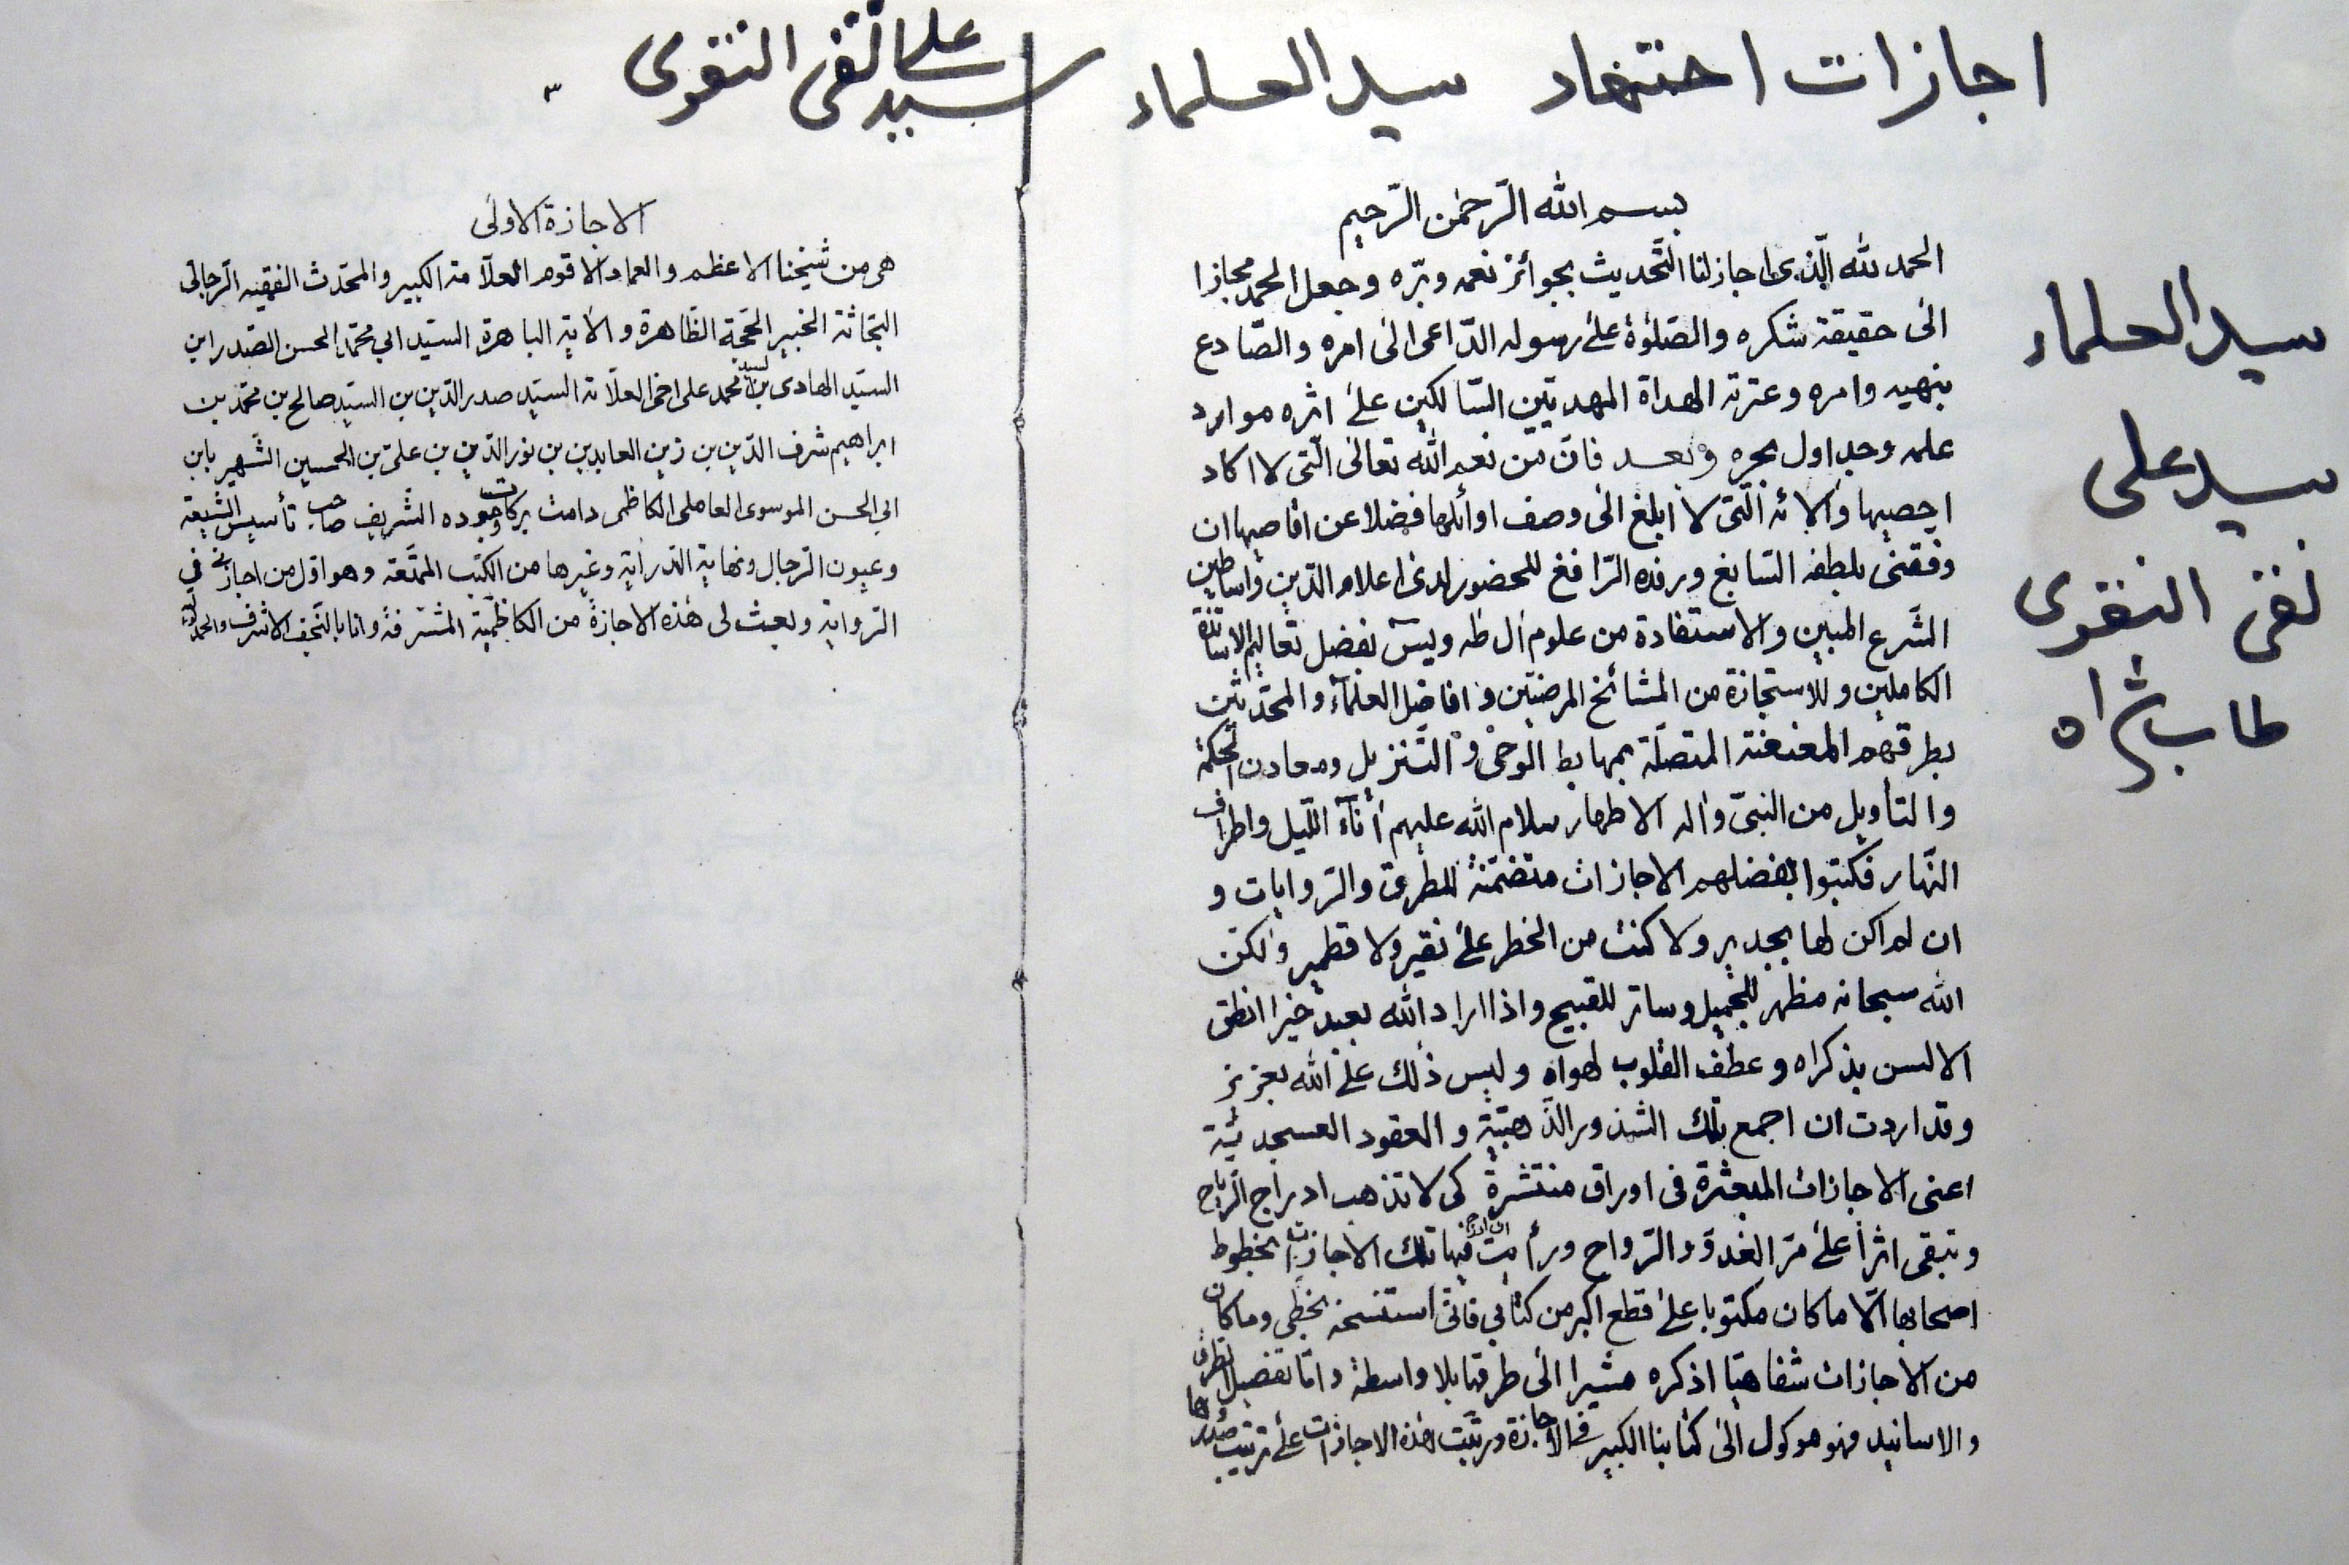 اجازات اجتهاد سيد العلماء سيد علي نقي النقوى
٣
سيد العلماء
سيد علي
نقي النقوى
طاب ثراه
بسم الله الرّحمٰن الرّحيم
الحمد لله الّذى اجاز لنا التّحديث بجوائز نعمه وبرّه وجعل الحمد مجازا
الى حقيقة شكره والصّلوٰة علىٰ رسوله الدّاعى الى امره والصّادع
بنهيه وامره وعترته الهداة المهديّين السّالكين علىٰ اثره موارد
علمه وجداول بحره وبعد فانّ من نعم الله تعالى الّتى لا اكاد
احصيها وآلائه الّتى لا ابلغ الى وصف اوائلها فضلا عن اقاصيها ان
وفقنى بلطفه السّابغ ورفده الرّافغ للحضور لدى اعلام الدّين واساطين
الشّرع المبين والاستفادة من علوم آل طٰه ويسٓ بفضل تعاليم الاساتذة
الكاملين وللاستجازة من المشائخ المرضيّين وافاضل العلمآء والمحدّثين
بطرقهم المعنعنة المتصلة بمهابط الوحى والتّنزيل ومعادن الحكمة
والتأويل من النبىّ وآله الاطهار سلام الله عليهم آنآء اللّيل واطراف
النّهار فكتبوا بفضلهم الاجازات متضمّنة للطرق والرّوايات و
ان لم اكن لها بجدير ولا كنت من الخطر علىٰ نقير ولا قطمير ولٰكن
الله سبحانه مظهر للجميل وساتر للقبيح واذا اراد الله بعبد خيرا انطق
الالسن بذكراه وعطف القلوب لهواه وليس ذٰلك علىٰ الله بعزيز
وقد اردت ان اجمع تلك الشذور الذّهبيّة والعقود العسجديّة
اعنى الاجازات المبعثرة فى اوراق منتشرة كى لا تذهب ادراج الرّياح
وتبقى اثراً علىٰ مرّ الغدوّ والرّواح ورأيت ان ادرج فيها تلك الاجازات بخطوط
اصحابها الّا ما كان مكتوبا علىٰ قطع اكبر من كتابي فانّى استنسخه بخطّي وما كان
من الاجازات شفاهيّا اذكره مشيرا الى طرقها بلا واسطة وامّا تفصيل الطرق
والاسانيد فهو موكول الى كتابنا الكبير فى الاجازة ورتّبت هٰذه الاجازات علىٰ ترتيب صدورها
الاجازة الاولىٰ
هى من شيخنا الاعظم والعماد الاقوم العلّامة الكبير والمحدّث الفقيه الرّجالى
البحّاثة الخبير الحجّة الظّاهرة والآية الباهرة السيّد ابي محمّد الحسن الصّدر ابن
السيّد الهادى بن السيد محمد على اخى العلّامة السيّد صدر الدّين بن السيّد صالح بن محمّد بن
ابراهيم شرف الدّين بن زين العابدين بن نور الدّين بن علىّ بن الحسين الشّهير بابن
ابي الحسن الموسوى العاملى الكاظمى دامت بركات وجوده الشّريف صاحب تأسيس الشيعة
وعيون الرّجال ونهاية الدّراية وغيرها من الكتب الممتّعة وهو اوّل من اجازنى فى
الرّواية وبعث لى هٰذه الاجازة من الكاظميّة المشرّفة وانا بالنّجف الاشرف والحمد لله